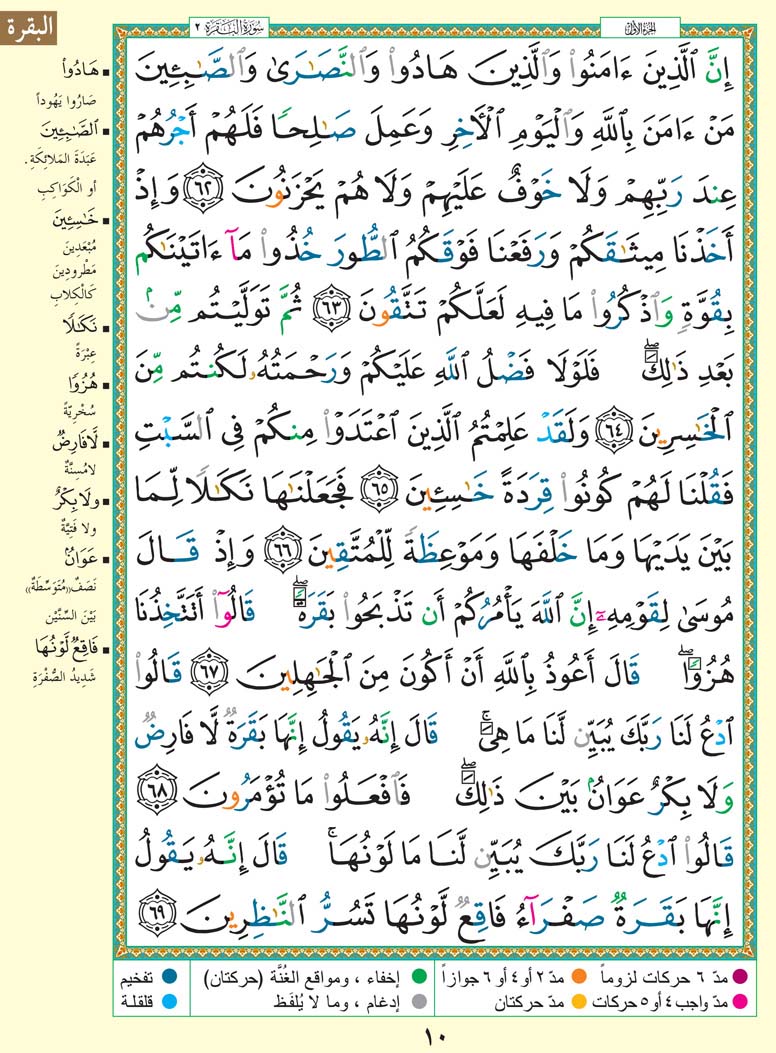 الجزء الأول
سورة البقرة ٢
البقرة
إِنَّ ٱلَّذِينَ ءَامَنُوا۟ وَٱلَّذِينَ هَادُوا۟ وَٱلنَّصَـٰرَىٰ وَٱلصَّـٰبِـِٔينَ
مَنْ ءَامَنَ بِٱللَّهِ وَٱلْيَوْمِ ٱلْـَٔاخِرِ وَعَمِلَ صَـٰلِحًا فَلَهُمْ أَجْرُهُمْ
عِندَ رَبِّهِمْ وَلَا خَوْفٌ عَلَيْهِمْ وَلَا هُمْ يَحْزَنُونَ ٦٢ وَإِذْ
أَخَذْنَا مِيثَـٰقَكُمْ وَرَفَعْنَا فَوْقَكُمُ ٱلطُّورَ خُذُوا۟ مَآ ءَاتَيْنَـٰكُم
بِقُوَّةٍ وَٱذْكُرُوا۟ مَا فِيهِ لَعَلَّكُمْ تَتَّقُونَ ٦٣ ثُمَّ تَوَلَّيْتُم مِّنۢ
بَعْدِ ذَٰلِكَ ۖ فَلَوْلَا فَضْلُ ٱللَّهِ عَلَيْكُمْ وَرَحْمَتُهُۥ لَكُنتُم مِّنَ
ٱلْخَـٰسِرِينَ ٦٤ وَلَقَدْ عَلِمْتُمُ ٱلَّذِينَ ٱعْتَدَوْا۟ مِنكُمْ فِى ٱلسَّبْتِ
فَقُلْنَا لَهُمْ كُونُوا۟ قِرَدَةً خَـٰسِـِٔينَ ٦٥ فَجَعَلْنَـٰهَا نَكَـٰلًا لِّمَا
بَيْنَ يَدَيْهَا وَمَا خَلْفَهَا وَمَوْعِظَةً لِّلْمُتَّقِينَ ٦٦ وَإِذْ قَالَ
مُوسَىٰ لِقَوْمِهِۦٓ إِنَّ ٱللَّهَ يَأْمُرُكُمْ أَن تَذْبَحُوا۟ بَقَرَةً ۖ قَالُوٓا۟ أَتَتَّخِذُنَا
هُزُوًا ۖ قَالَ أَعُوذُ بِٱللَّهِ أَنْ أَكُونَ مِنَ ٱلْجَـٰهِلِينَ ٦٧ قَالُوا۟
ٱدْعُ لَنَا رَبَّكَ يُبَيِّن لَّنَا مَا هِىَ ۚ قَالَ إِنَّهُۥ يَقُولُ إِنَّهَا بَقَرَةٌ لَّا فَارِضٌ
وَلَا بِكْرٌ عَوَانٌۢ بَيْنَ ذَٰلِكَ ۖ فَٱفْعَلُوا۟ مَا تُؤْمَرُونَ ٦٨
قَالُوا۟ ٱدْعُ لَنَا رَبَّكَ يُبَيِّن لَّنَا مَا لَوْنُهَا ۚ قَالَ إِنَّهُۥ يَقُولُ
إِنَّهَا بَقَرَةٌ صَفْرَآءُ فَاقِعٌ لَّوْنُهَا تَسُرُّ ٱلنَّـٰظِرِينَ ٦٩
هَادُوا۟
صَارُوا يَهُوداً
ٱلصَّـٰبِـِٔينَ
عَبَدَةَ المَلائِكَةِ.
أو الْكَوَاكِبِ
خَـٰسِـِٔينَ
مُبْعَدِينَ
مَطْرودِينَ
كَالْكِلابِ
نَكَـٰلًا
عِبْرَةً
هُزُوًا
سُخْرِيَّةً
لَّا فَارِضٌ
لا مُسِنَّةٌ
ولا بِكْرٌ
ولا فَتِيَّةٌ
عَوَانٌ
نَصَفٌ «مُتَوَسِّطَةٌ»
بَيْنَ السِّنَّيْنِ
فَاقِعٌ لَّوْنُهَا
شَدِيدُ الصُّفْرَةِ
مدّ ٦ حركات لزوماً مدّ ٢ أو ٤ أو ٦ جوازاً إخفاء ، ومواقع الغُنَّة (حركتان) تفخيم
مدّ واجب ٤ أو ٥ حركات مدّ حركتان إدغام ، وما لا يُلفَظ قلقلة
١٠